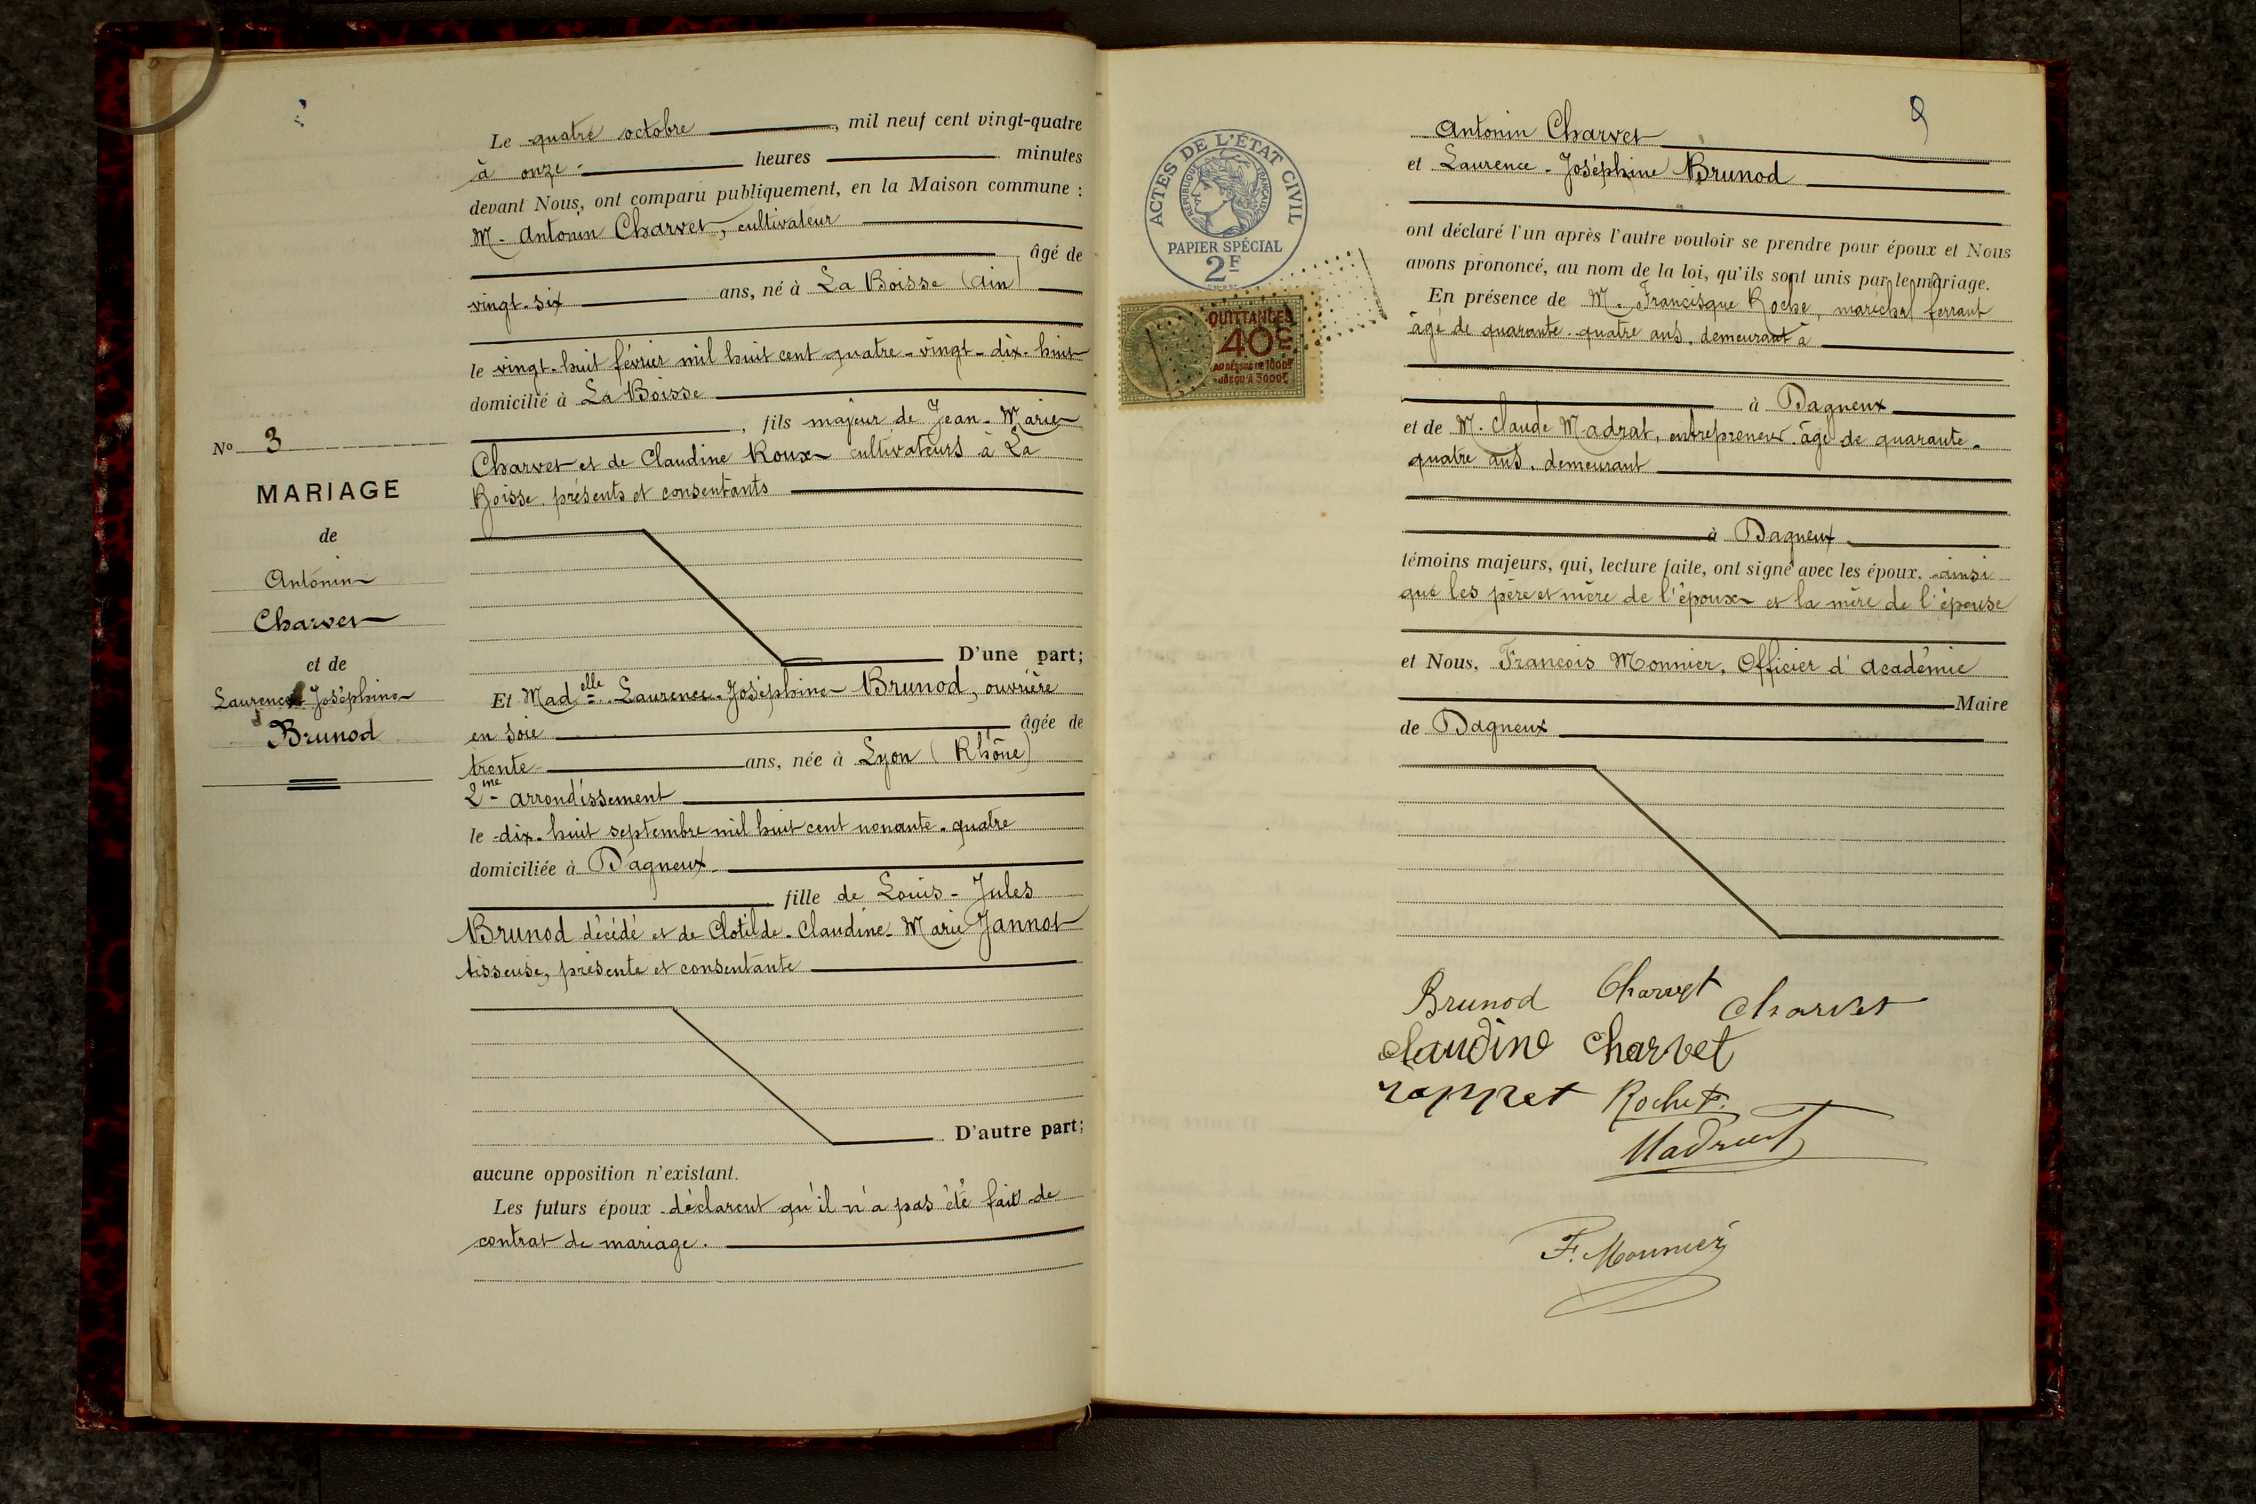 Nº 3
MARIAGE
de
Antonin
Charvet
et de
Laurence Joséphine
Brunod
Le quatre octobre, mil neuf cent vingt-quatre
à onze heures minutes
devant Nous, ont comparu publiquement, en la Maison commune :
M. Antonin Charvet, cultivateur
âgé de
vingt-six ans, né à La Boisse (Ain)
le vingt-huit février mil huit cent quatre-vingt-dix-huit
domicilié à La Boisse
, fils majeur de Jean-Marie
Charvet et de Claudine Roux cultivateurs à La
Boisse, présents et consentants
D'une part;
Et Madelle Laurence-Joséphine Brunod, ouvrière
en soie âgée de
trente ans, née à Lyon (Rhône)
2me arrondissement
le dix-huit septembre mil huit cent nonante-quatre
domiciliée à Dagneux
fille de Louis-Jules
Brunod décédé et de Clotilde-Claudine-Marie Jannot
tisseuse, présente et consentante
D'autre part;
aucune opposition n'existant.
Les futurs époux déclarent qu'il n'a pas été fait de
contrat de mariage.
9
ACTES DE L'ÉTAT CIVIL
RÉPUBLIQUE FRANÇAISE
PAPIER SPÉCIAL
2F
QUITTANCES
40c
AU DESSUS DE 1000F
JUSQU'A 3000F
Antonin Charvet
et Laurence-Joséphine Brunod
ont déclaré l'un après l'autre vouloir se prendre pour époux et Nous
avons prononcé, au nom de la loi, qu'ils sont unis par le mariage.
En présence de M. Francisque Roche, maréchal ferrant
âgé de quarante-quatre ans, demeurant à
à Dagneux
et de M. Claude Madrat, entrepreneur, âgé de quarante-
quatre ans, demeurant
à Dagneux
témoins majeurs, qui, lecture faite, ont signé avec les époux, ainsi
que les père et mère de l'époux et la mère de l'épouse
et Nous, François Monnier, Officier d'Académie
Maire
de Dagneux
Brunod Charvet Charvet
Claudine Charvet
Roche F.
Madrat
F. Monnier